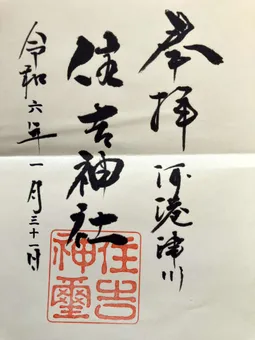 奉拝
河港津川
住吉神社
令和六年一月三十一日
住吉神璽